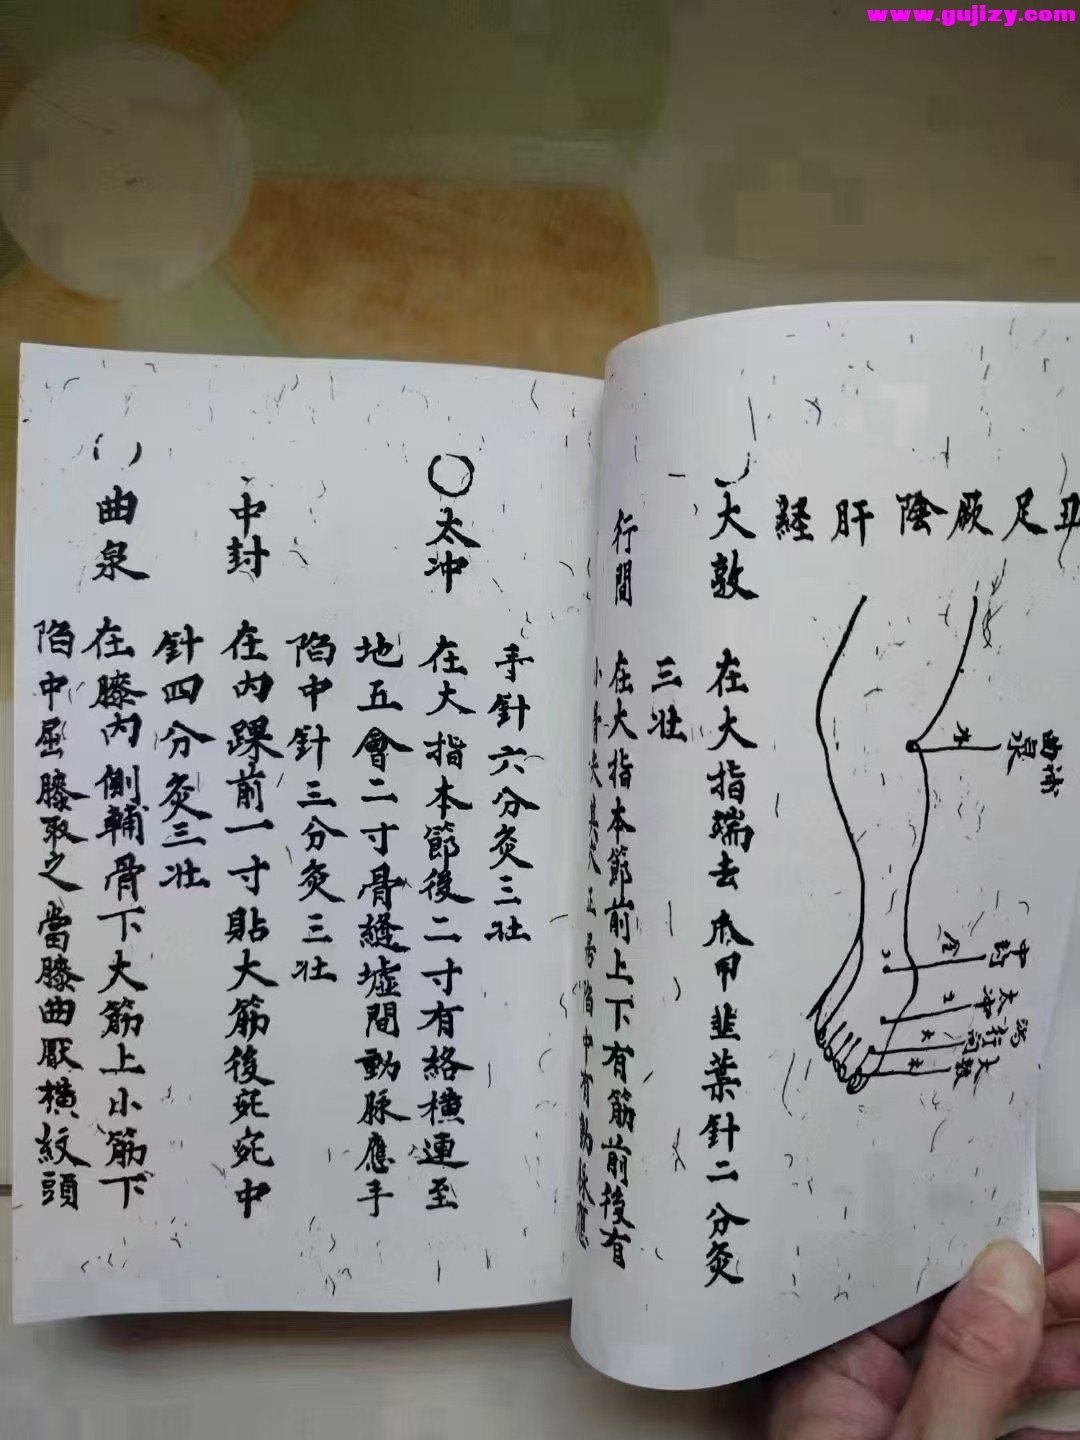 www.gujizy.com
丑足厥陰肝經
曲泉
水
中封
金
太冲
土
行间
火
大敦
木
大敦
在大指端去爪甲韭葉針二分灸
三壮
行間
在大指本節前上下有筋前後有
小骨尖其穴正居陷中有動脉應
手針六分灸三壮
太冲
在大指本節後二寸有絡橫連至
地五會二寸骨縫墟間動脉應手
陷中針三分灸三壮
中封
在内踝前一寸貼大筋後宛宛中
針四分灸三壮
曲泉
在膝内側輔骨下大筋上小筋下
陷中屈膝取之當膝曲厭橫紋頭